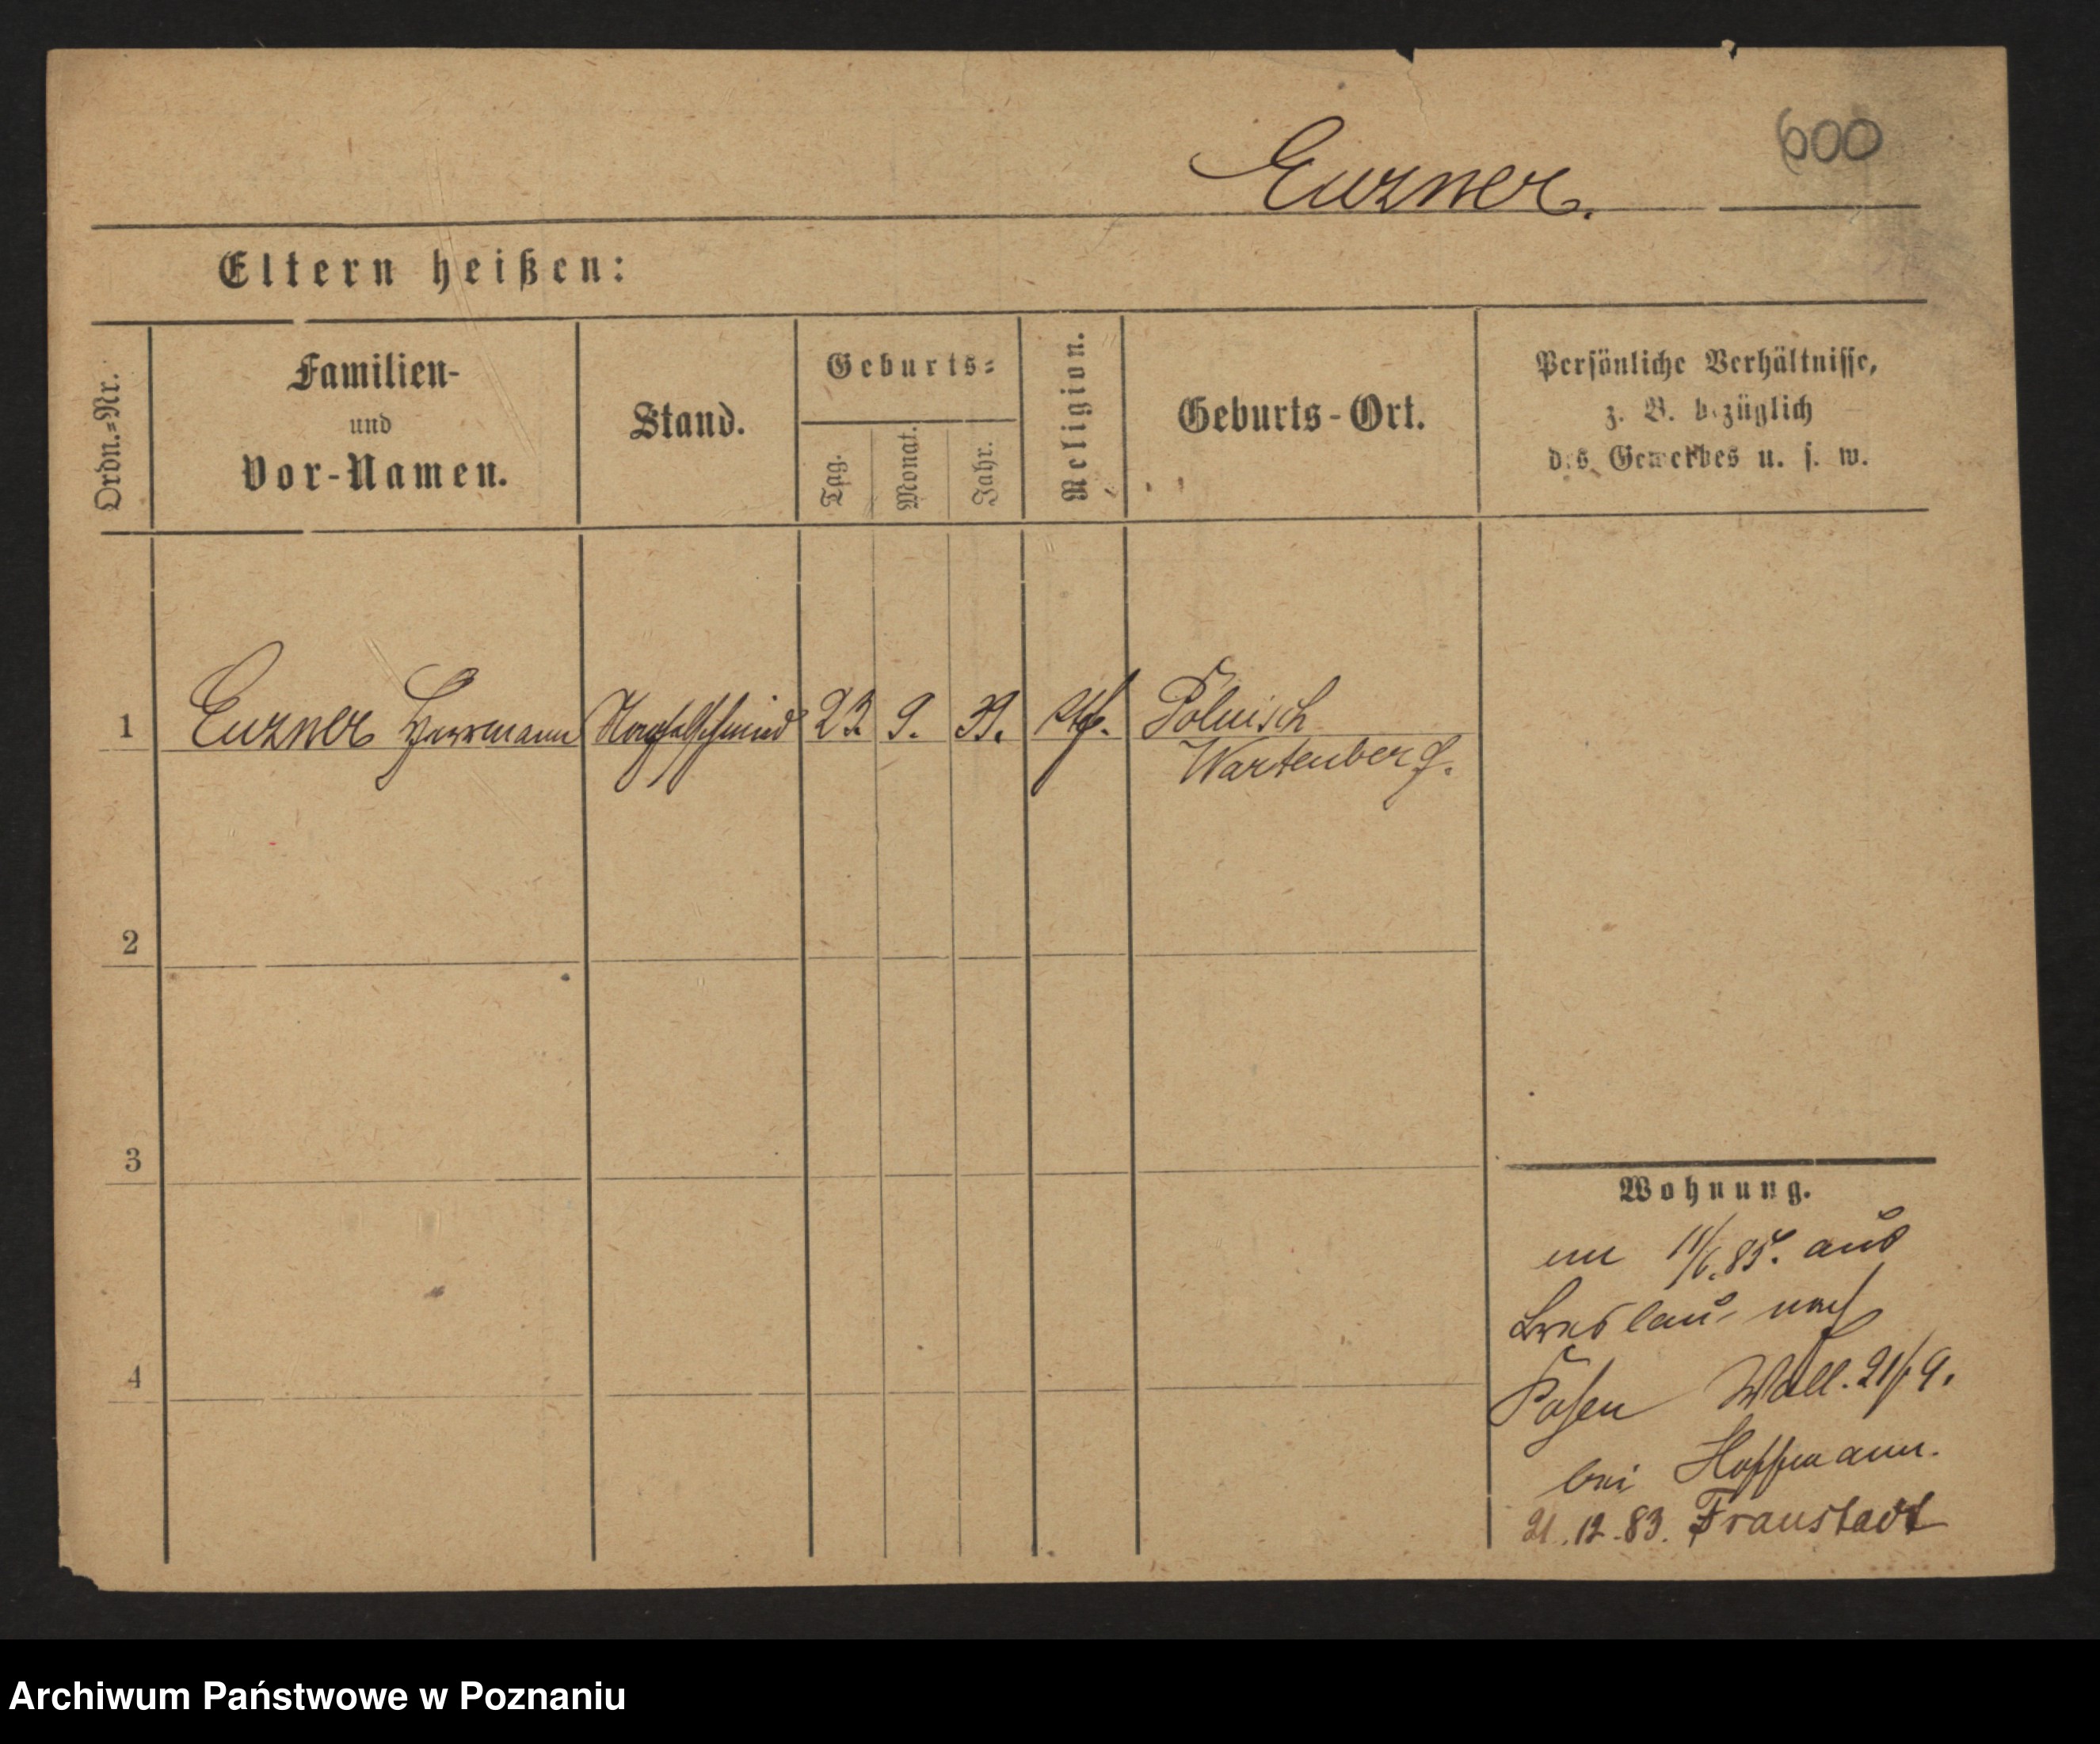 600
Euzner.
Eltern heißen:
Ordn.=Nr.
Familien-
und
Vor-Namen.
Stand.
Geburts=
Tag.
Monat.
Jahr.
Religion.
Geburts-Ort.
Persönliche Verhältnisse,
z. B. bezüglich
des Gewerbes u. s. w.
1 Euzner Herrmann 23 9. 39. Polnisch
Wartenberg.
2
3
4
Wohnung.
11/6.85. aus
Breslau nach
Posen Wall. 21/
bei Hoffmann.
21.12.83. Fraustadt
Archiwum Państwowe w Poznaniu